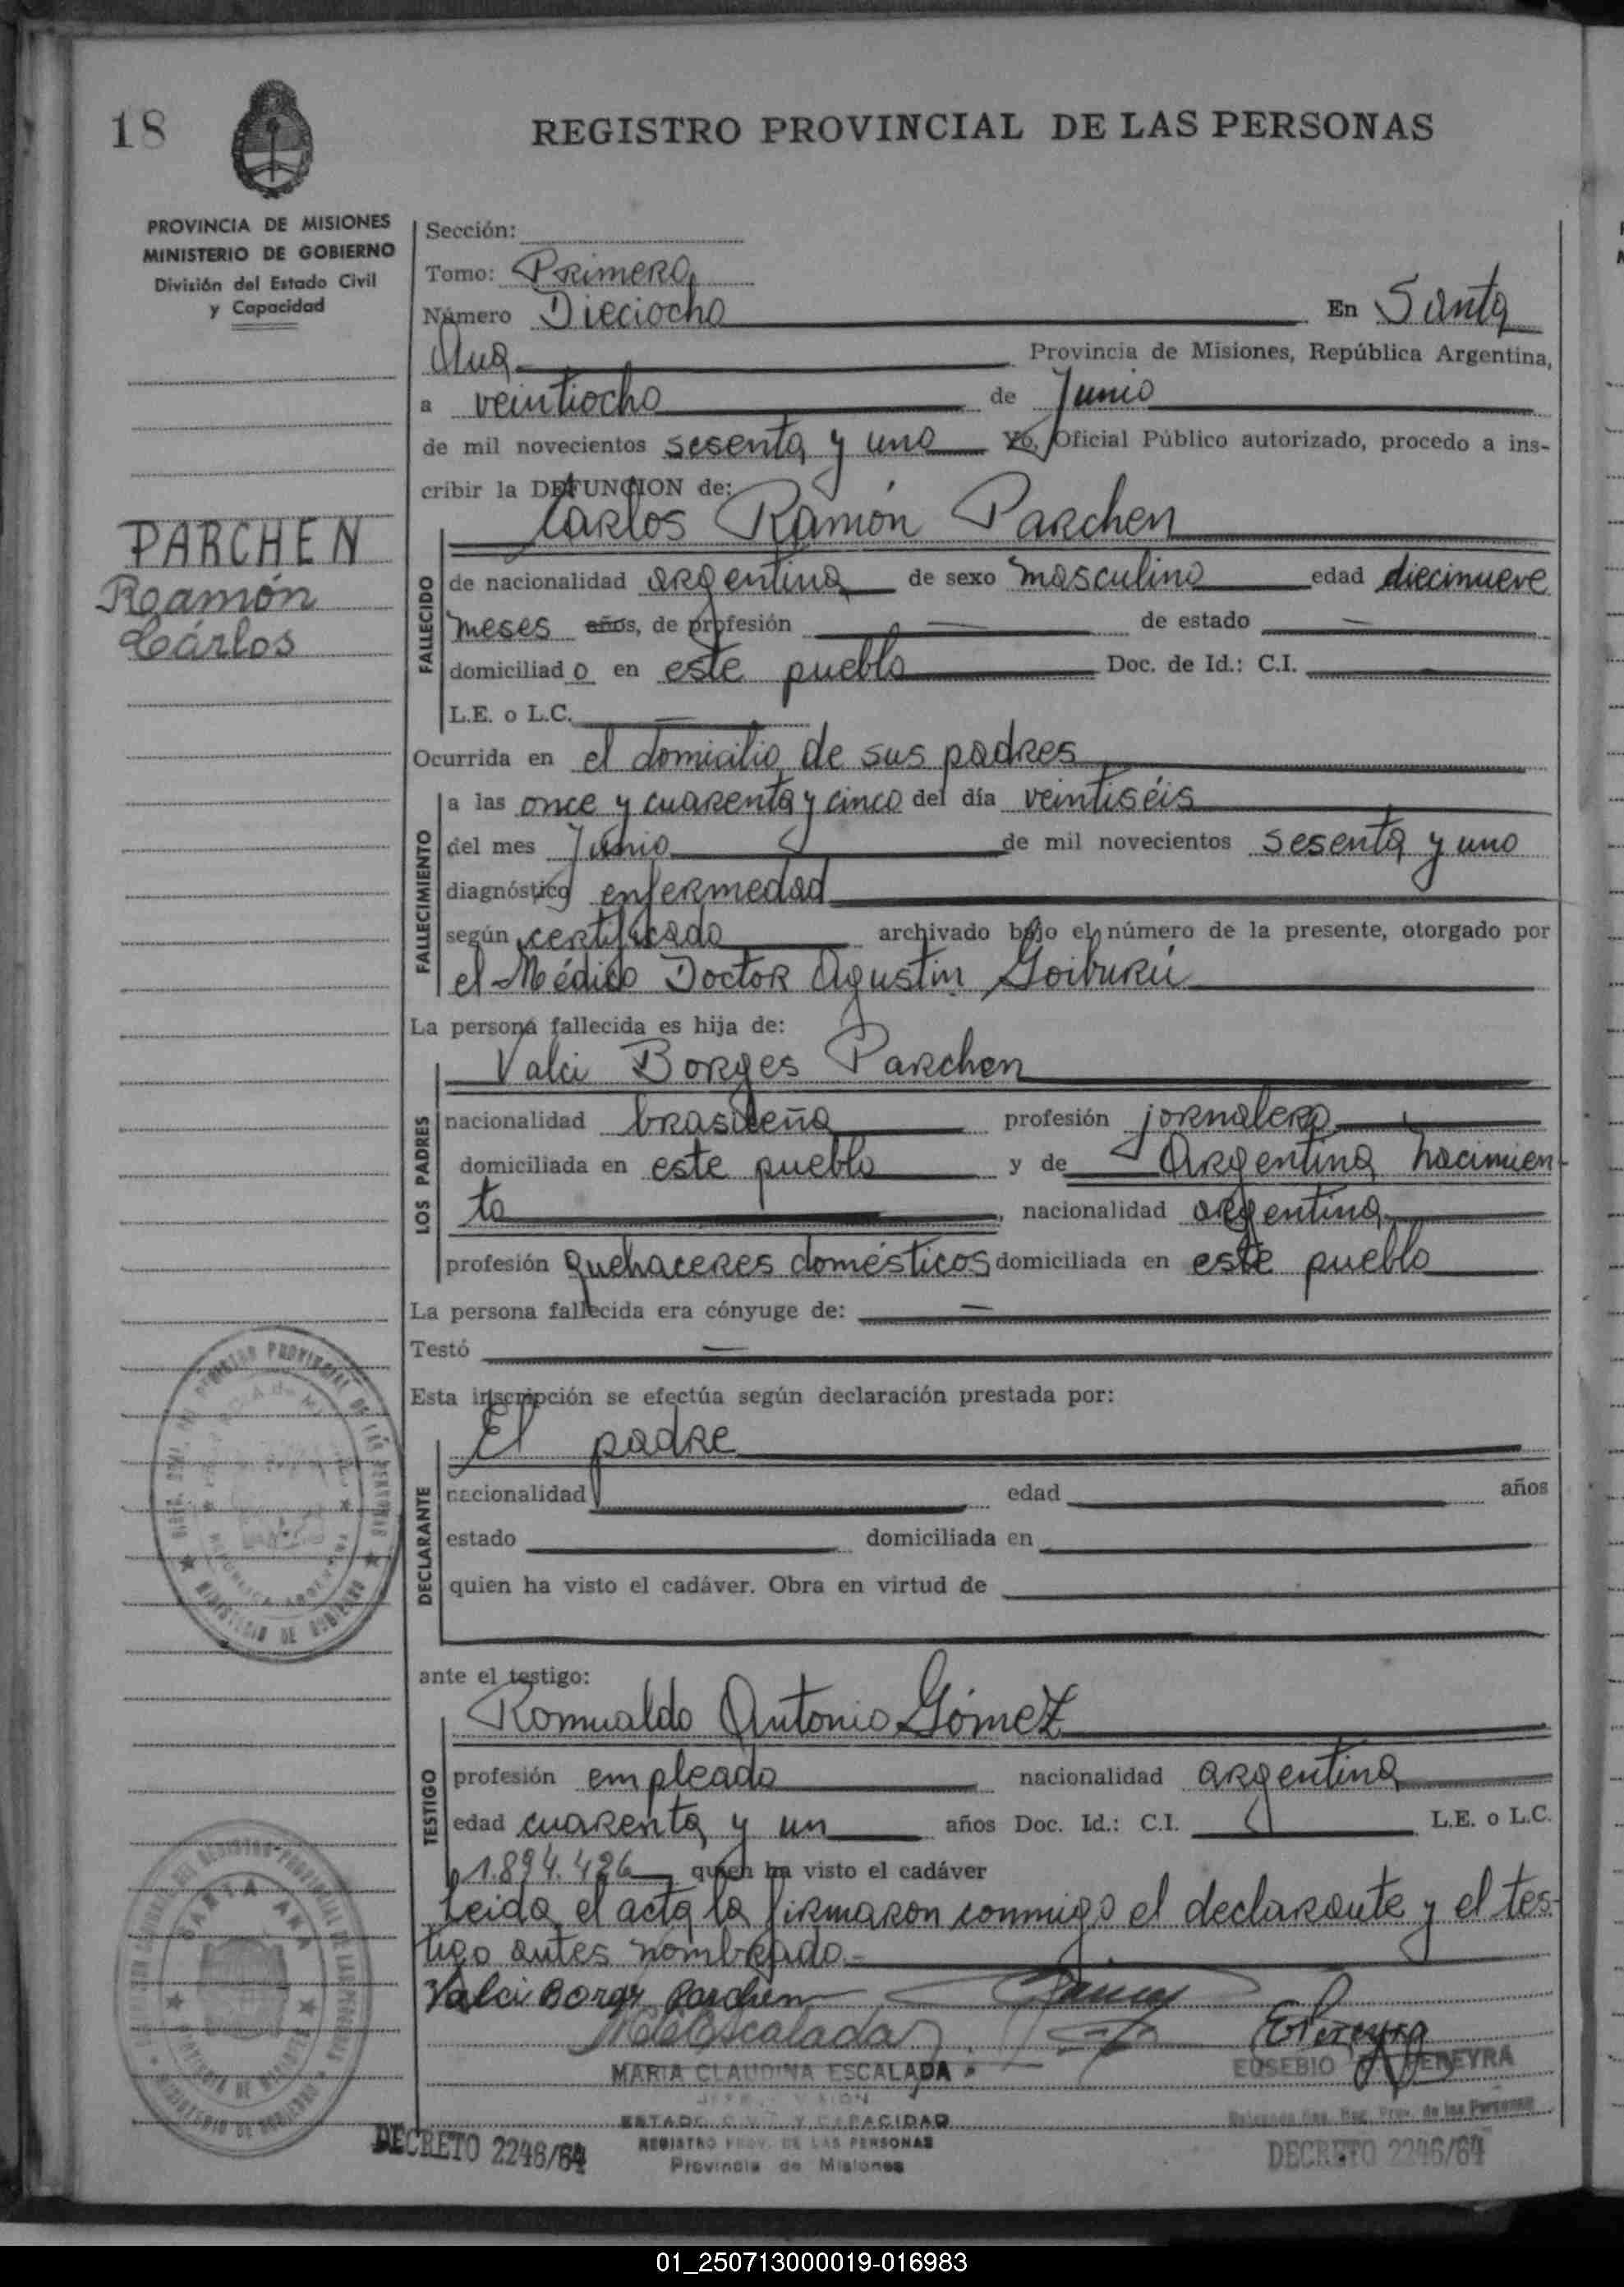 18
REGISTRO PROVINCIAL DE LAS PERSONAS
PROVINCIA DE MISIONES
MINISTERIO DE GOBIERNO
División del Estado Civil
y Capacidad
PARCHEN
Ramón
Cárlos
Sección:
Tomo: Primero
Número Dieciocho En Santa
Ana Provincia de Misiones, República Argentina,
a veintiocho de Junio
de mil novecientos sesenta y uno Yo, Oficial Público autorizado, procedo a ins-
cribir la DEFUNCION de:
Carlos Ramón Parchen
FALLECIDO
de nacionalidad argentina de sexo masculino edad diecinueve
meses años, de profesión — de estado —
domiciliado en este pueblo Doc. de Id.: C.I.
L.E. o L.C. —
Ocurrida en el domicilio de sus padres
FALLECIMIENTO
a las once y cuarenta y cinco del día veintiséis
del mes Junio de mil novecientos sesenta y uno
diagnóstico enfermedad
según certificado archivado bajo el número de la presente, otorgado por
el Médico Doctor Agustin Goiburú
La persona fallecida es hija de:
LOS PADRES
Valci Borges Parchen
nacionalidad brasileña profesión jornalero
domiciliada en este pueblo y de Argentina Nacimien-
to, nacionalidad argentina
profesión quehaceres domésticos domiciliada en este pueblo
La persona fallecida era cónyuge de: —
Testó —
Esta inscripción se efectúa según declaración prestada por:
DECLARANTE
El padre
nacionalidad edad años
estado domiciliada en
quien ha visto el cadáver. Obra en virtud de
ante el testigo:
TESTIGO
Romualdo Antonio Gómez
profesión empleado nacionalidad argentina
edad cuarenta y un años Doc. Id.: C.I. L.E. o L.C.
1.894.426 quien ha visto el cadáver
Leida el acta la firmaron conmigo el declarante y el tes-
tigo antes nombrado.-
Valci Borges Parchen
MCdeEscalada EPereyra
MARIA CLAUDINA ESCALADA EUSEBIO PEREYRA
ESTADO CIVIL Y CAPACIDAD
REGISTRO PROV. DE LAS PERSONAS
Provincia de Misiones
DECRETO 2246/64 DECRETO 2246/64
SANTA ANA
MINISTERIO DE GOBIERNO
01_250713000019-016983